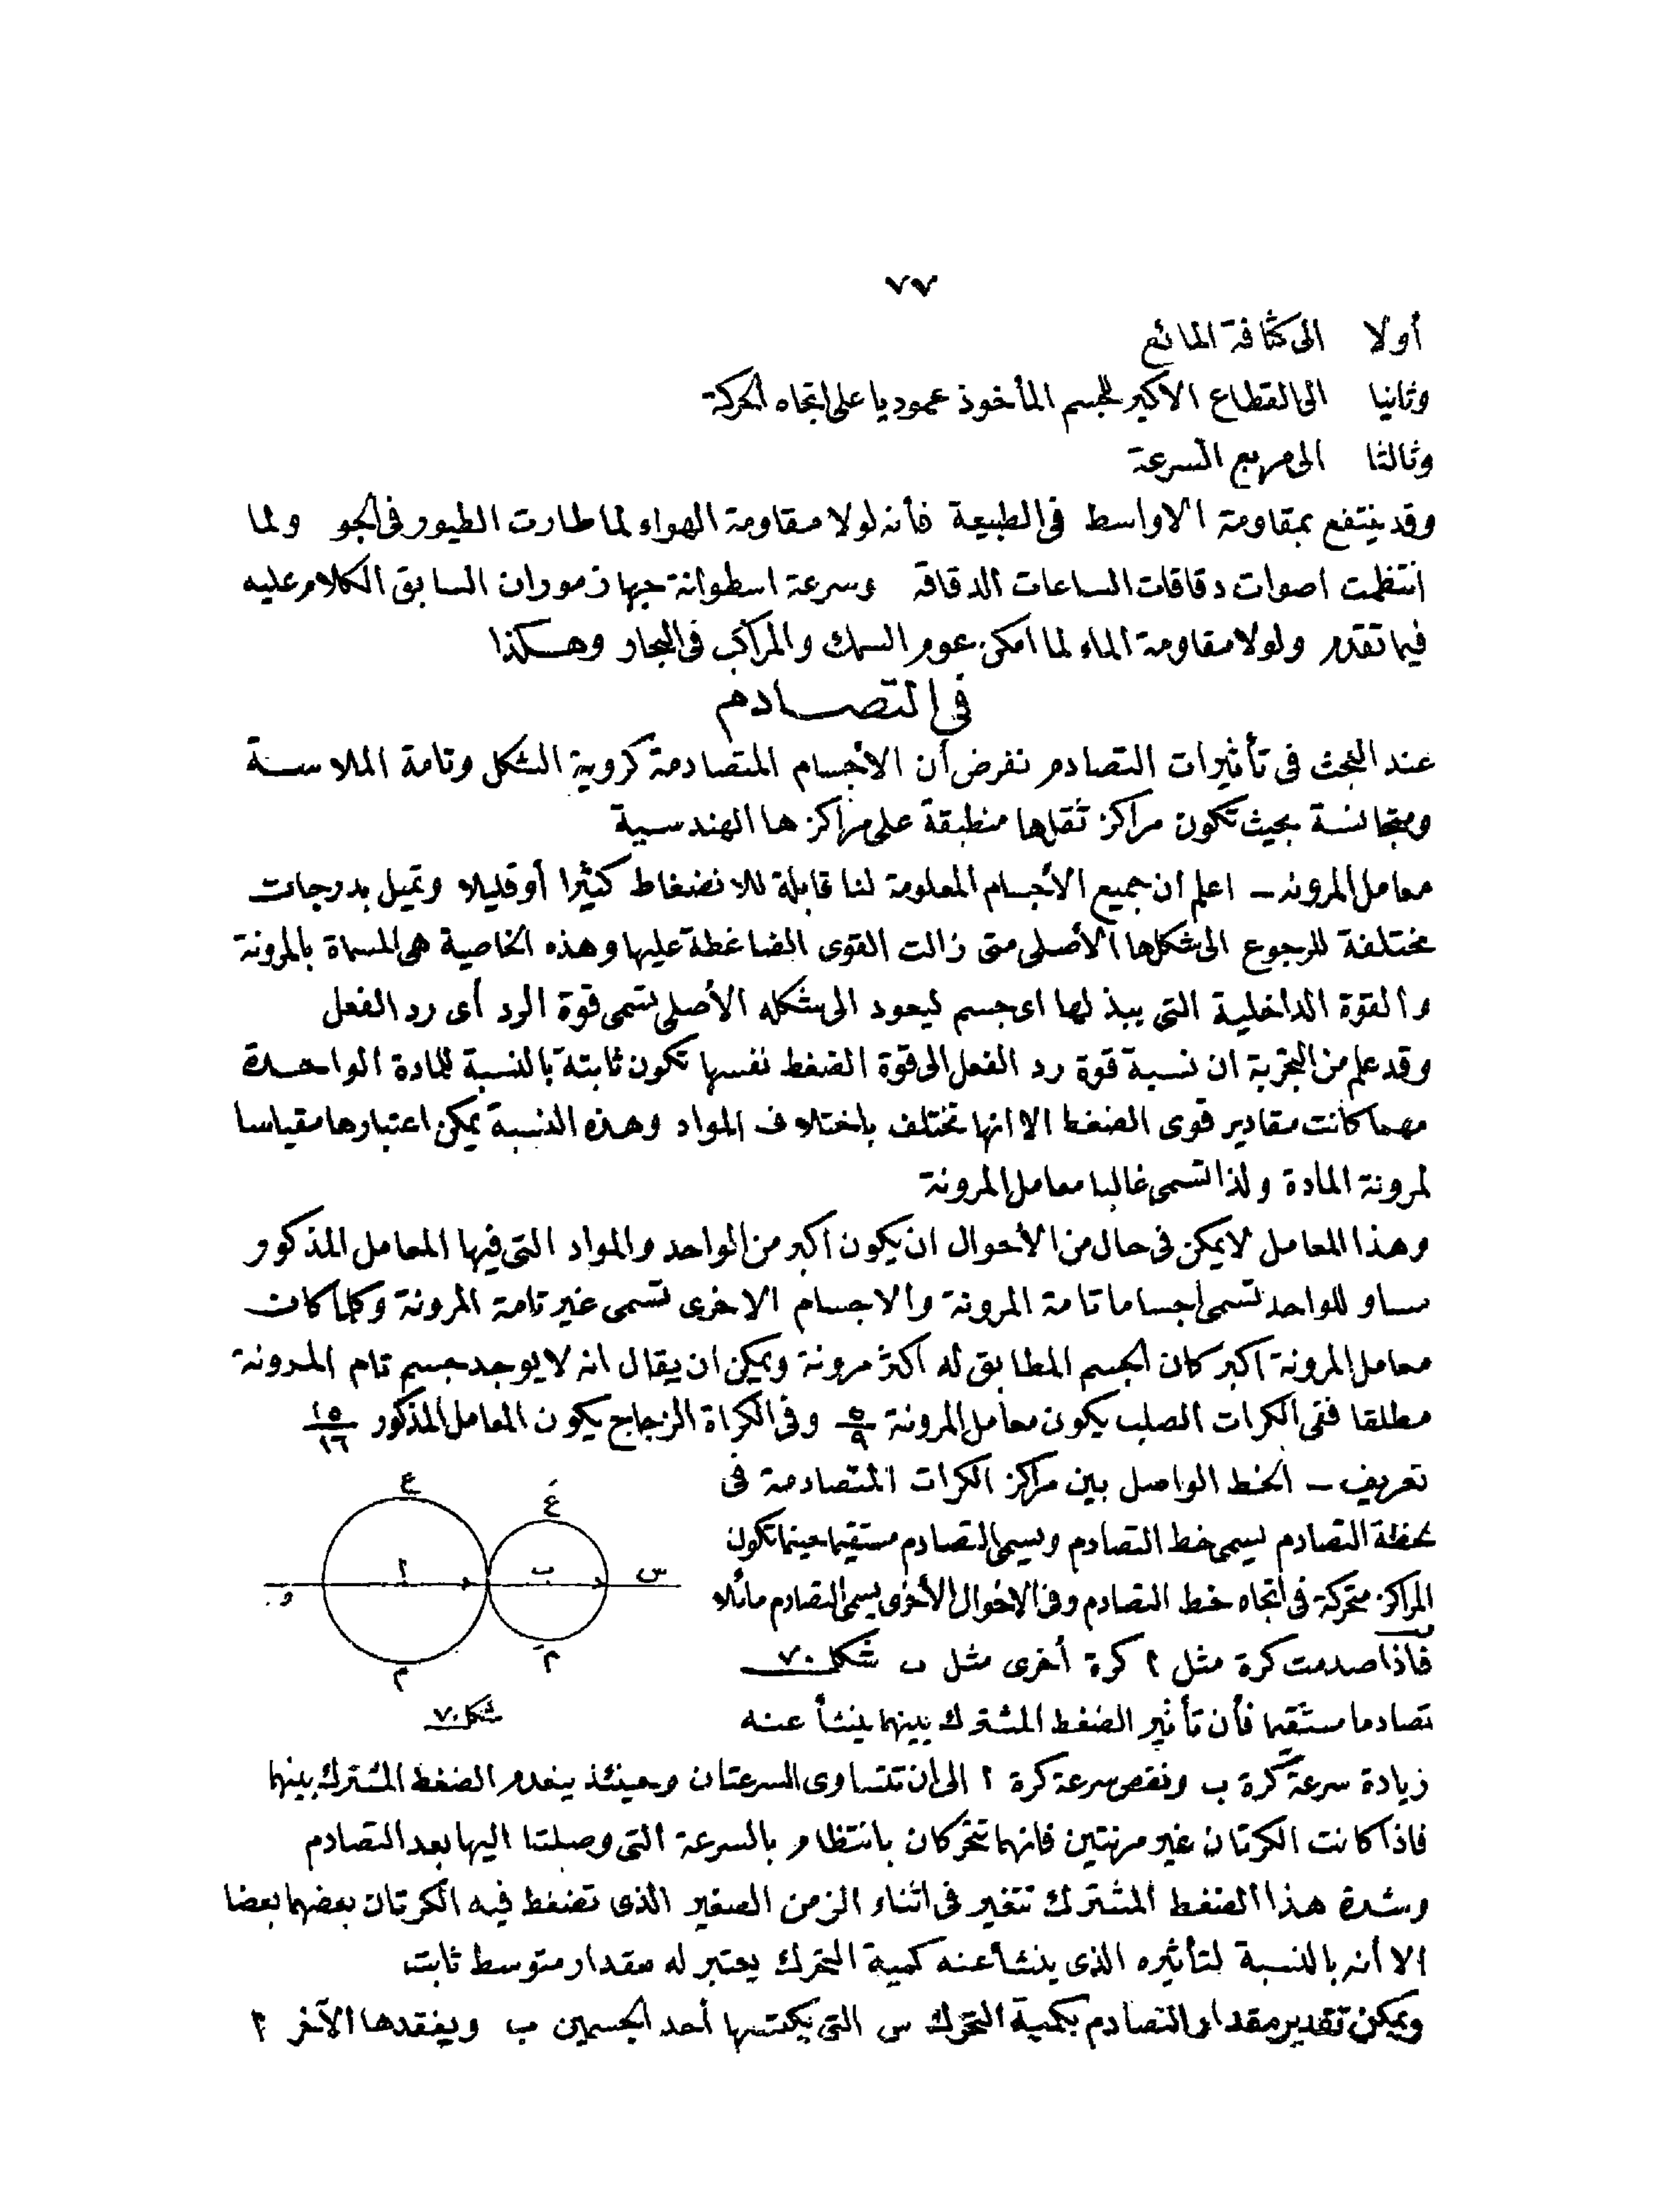 ٧٧
أولا الى كثافة المائع
وثانيا الى القطاع الاكبر للجسم المأخوذ عموديا على اتجاه الحركة
وثالثا الى مربع السرعة
وقد ينتفع بمقاومة الاواسط فى الطبيعة فأنه لولا مقاومة الهواء لما طارت الطيور فى الجو ولما
انتظمت اصوات دقاقات الساعات الدقاقة وسرعة اسطوانة جهاز موران السابق الكلام عليه
فيما تقدم ولولا مقاومة الماء لما امكن عوم السمك والمراكب فى البحار وهكذا
فى التصادم
عند البحث فى تأثيرات التصادم نفرض أن الأجسام المتصادمة كروية الشكل وتامة الملاسة
ومتجانسة بحيث تكون مراكز ثقلها منطبقة على مراكزها الهندسية
معامل المرونه ـ اعلم ان جميع الأجسام المعلومة لنا قابلة للانضغاط كثيرا أو قليلا وتميل بدرجات
مختلفة للرجوع الى شكلها الأصلى متى زالت القوى الضاغطة عليها وهذه الخاصية هى المسماة بالمرونة
والقوة الداخلية التى يبذلها اى جسم ليعود الى شكله الأصلى تسمى قوة الرد أى رد الفعل
وقد علم من التجربة ان نسبة قوة رد الفعل الى قوة الضغط نفسها تكون ثابتة بالنسبة للمادة الواحدة
مهما كانت مقادير قوى الضغط الا انها تختلف باختلاف المواد وهذه النسبة يمكن اعتبارها مقياسا
لمرونة المادة ولذا تسمى غالبا معامل المرونة
وهذا المعامل لا يمكن فى حال من الأحوال ان يكون اكبر من الواحد والمواد التى فيها المعامل المذكور
مساو للواحد تسمى اجساما تامة المرونة والاجسام الاخرى تسمى غير تامة المرونة وكلما كان
معامل المرونة اكبر كان الجسم المطابق له اكثر مرونة ويمكن ان يقال انه لا يوجد جسم تام المرونة
مطلقا ففى الكرات الصلب يكون معامل المرونة ٥/٩ وفى الكراة الزجاج يكون المعامل المذكور ١٥/١٦
تعريف ـ الخط الواصل بين مراكز الكرات المتصادمة فى
لحظة التصادم يسمى خط التصادم ويسمى التصادم مستقيما حينما تكون
المراكز متحركة فى اتجاه خط التصادم وفى الاحوال الأخرى يسمى التصادم مائلا
فاذا صدمت كرة مثل ا كرة أخرى مثل ب شكل ٧٠
تصادما مستقيما فأن تأثير الضغط المشترك بينهما ينشأ عنه
ع
غَ
ا
ب
س
و
م
مَ
شكل ٧٠
زيادة سرعة كرة ب ونقص سرعة كرة ا الى ان تتساوى السرعتان وحينئذ ينعدم الضغط المشترك بينهما
فاذا كانت الكرتان غير مرنتين فانهما تتحركان بانتظام بالسرعة التى وصلتا اليها بعد التصادم
وشدة هذا الضغط المشترك تتغير فى اثناء الزمن الصغير الذى تضغط فيه الكرتان بعضهما بعضا
الا أنه بالنسبة لتأثيره الذى ينشأ عنه كمية التحرك يعتبر له مقدار متوسط ثابت
ويمكن تقدير مقدار التصادم بكمية التحرك س التى يكتسبها أحد الجسمين ب ويفقدها الآخر ا